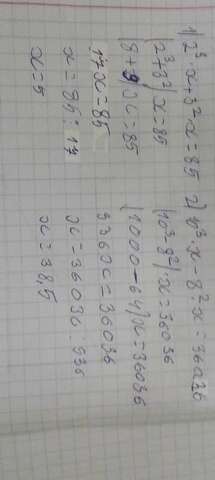 1) 2³·x+3²·x=85
(2³+3²)x=85
(8+9)x=85
17x=85
x=85:17
x=5
2) 10³·x-8²·x=36036
(10³-8²)·x=36036
(1000-64)x=36036
936x=36036
x=36036:936
x=38,5